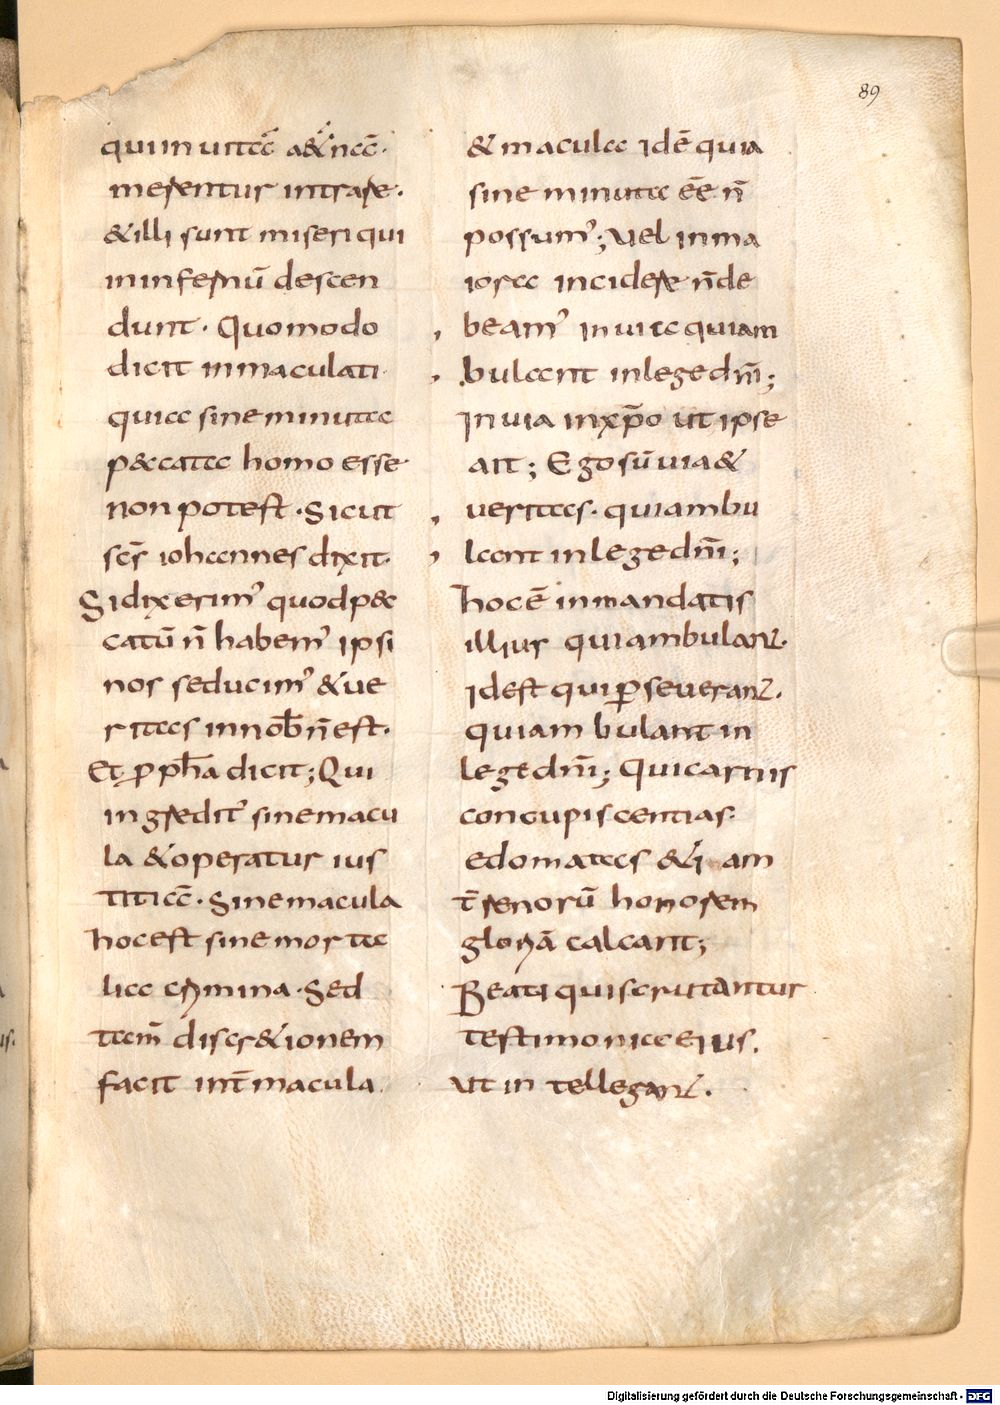 89
qui in uita&#772; a&ternā·
merentur intrare·
& illi sunt miseri qui
in infernū descen
dunt· Quomodo
dicit inmaculati·
quia sine minuta
p&cata homo esse
non potest· Sicut
scs̄ iohannes dixit·
Si dixerim' quod p&c
catū n̄ habem' ipsi
nos seducim' & ue
ritas in nob̄ n̄ est·
Et ꝓph̄a dicit; Qui
ingredit' sine macu
la & operatur ius
titiā· Sine macula
hoc est sine morta
lia crimina· Sed
tam̄ discr&ionem
facit int̄ macula
& macula idē quia
sine minuta ēē n̄
possum'; Uel in ma
iora incidere n̄ de
beam' in uita qui am
bulant in lege dn̄i;
In uia in xp̄o ut ipse
ait; Ego sū uia &
ueritas· qui ambu
lant in lege dn̄i;
hoc ē in mandatis
illius qui ambulant·
id est qui ꝑseuerant·
qui ambulant in
lege dn̄i; Qui carnis
concupiscentias·
edomatas & iam
t̄renorū honorem
gloriā calcant;
Beati qui scrutantur
testimonia eius.
ut intellegant·
Digitalisierung gefördert durch die Deutsche Forschungsgemeinschaft - DFG